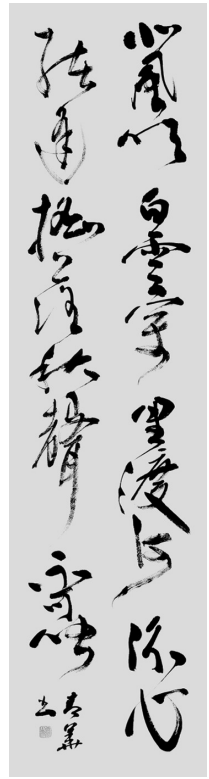 北風吹白雲万里渡河汾心
緒逢搖落秋聲不可聞